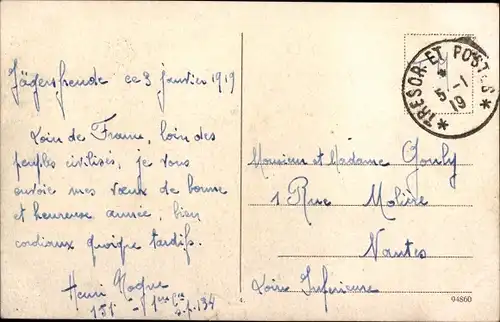 Jägersfreude ce 3 janvier 1919
Loin de France, loin des
peuples civilisés, je vous
envoie mes vœux de bonne
et heureuse année, bien
cordiaux quoique tardifs.
Henri
151 - 1ère Cie
S.P. 134
TRESOR ET POSTES
5 - 1
19
Monsieur et Madame Gouly
1 Rue Molière
Nantes
Loire Inférieure
94860